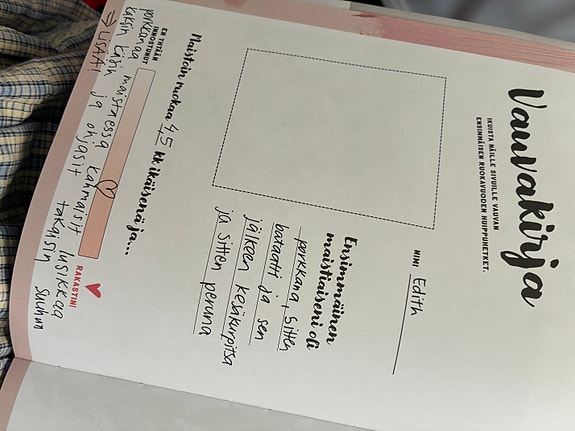 Vauvakirja
IKUISTA NÄILLE SIVUILLE VAUVAN
ENSIMMÄISEN RUOKAVUODEN HUIPPUHETKET.
NIMI Edith
Ensimmäinen
maistiaiseni oli
porkkana, sitten
bataatti ja sen
jälkeen kesäkurpitsa
ja sitten peruna
Maistoin ruokaa 4,5 kk ikäisenä ja...
EN YHTÄÄN
INNOSTUNUT
RAKASTIN!
porkkanaa maistaessa kahmaisit lusikkaa
käsin ja ohjasit takaisin suuhun
⇒ LISÄÄ!